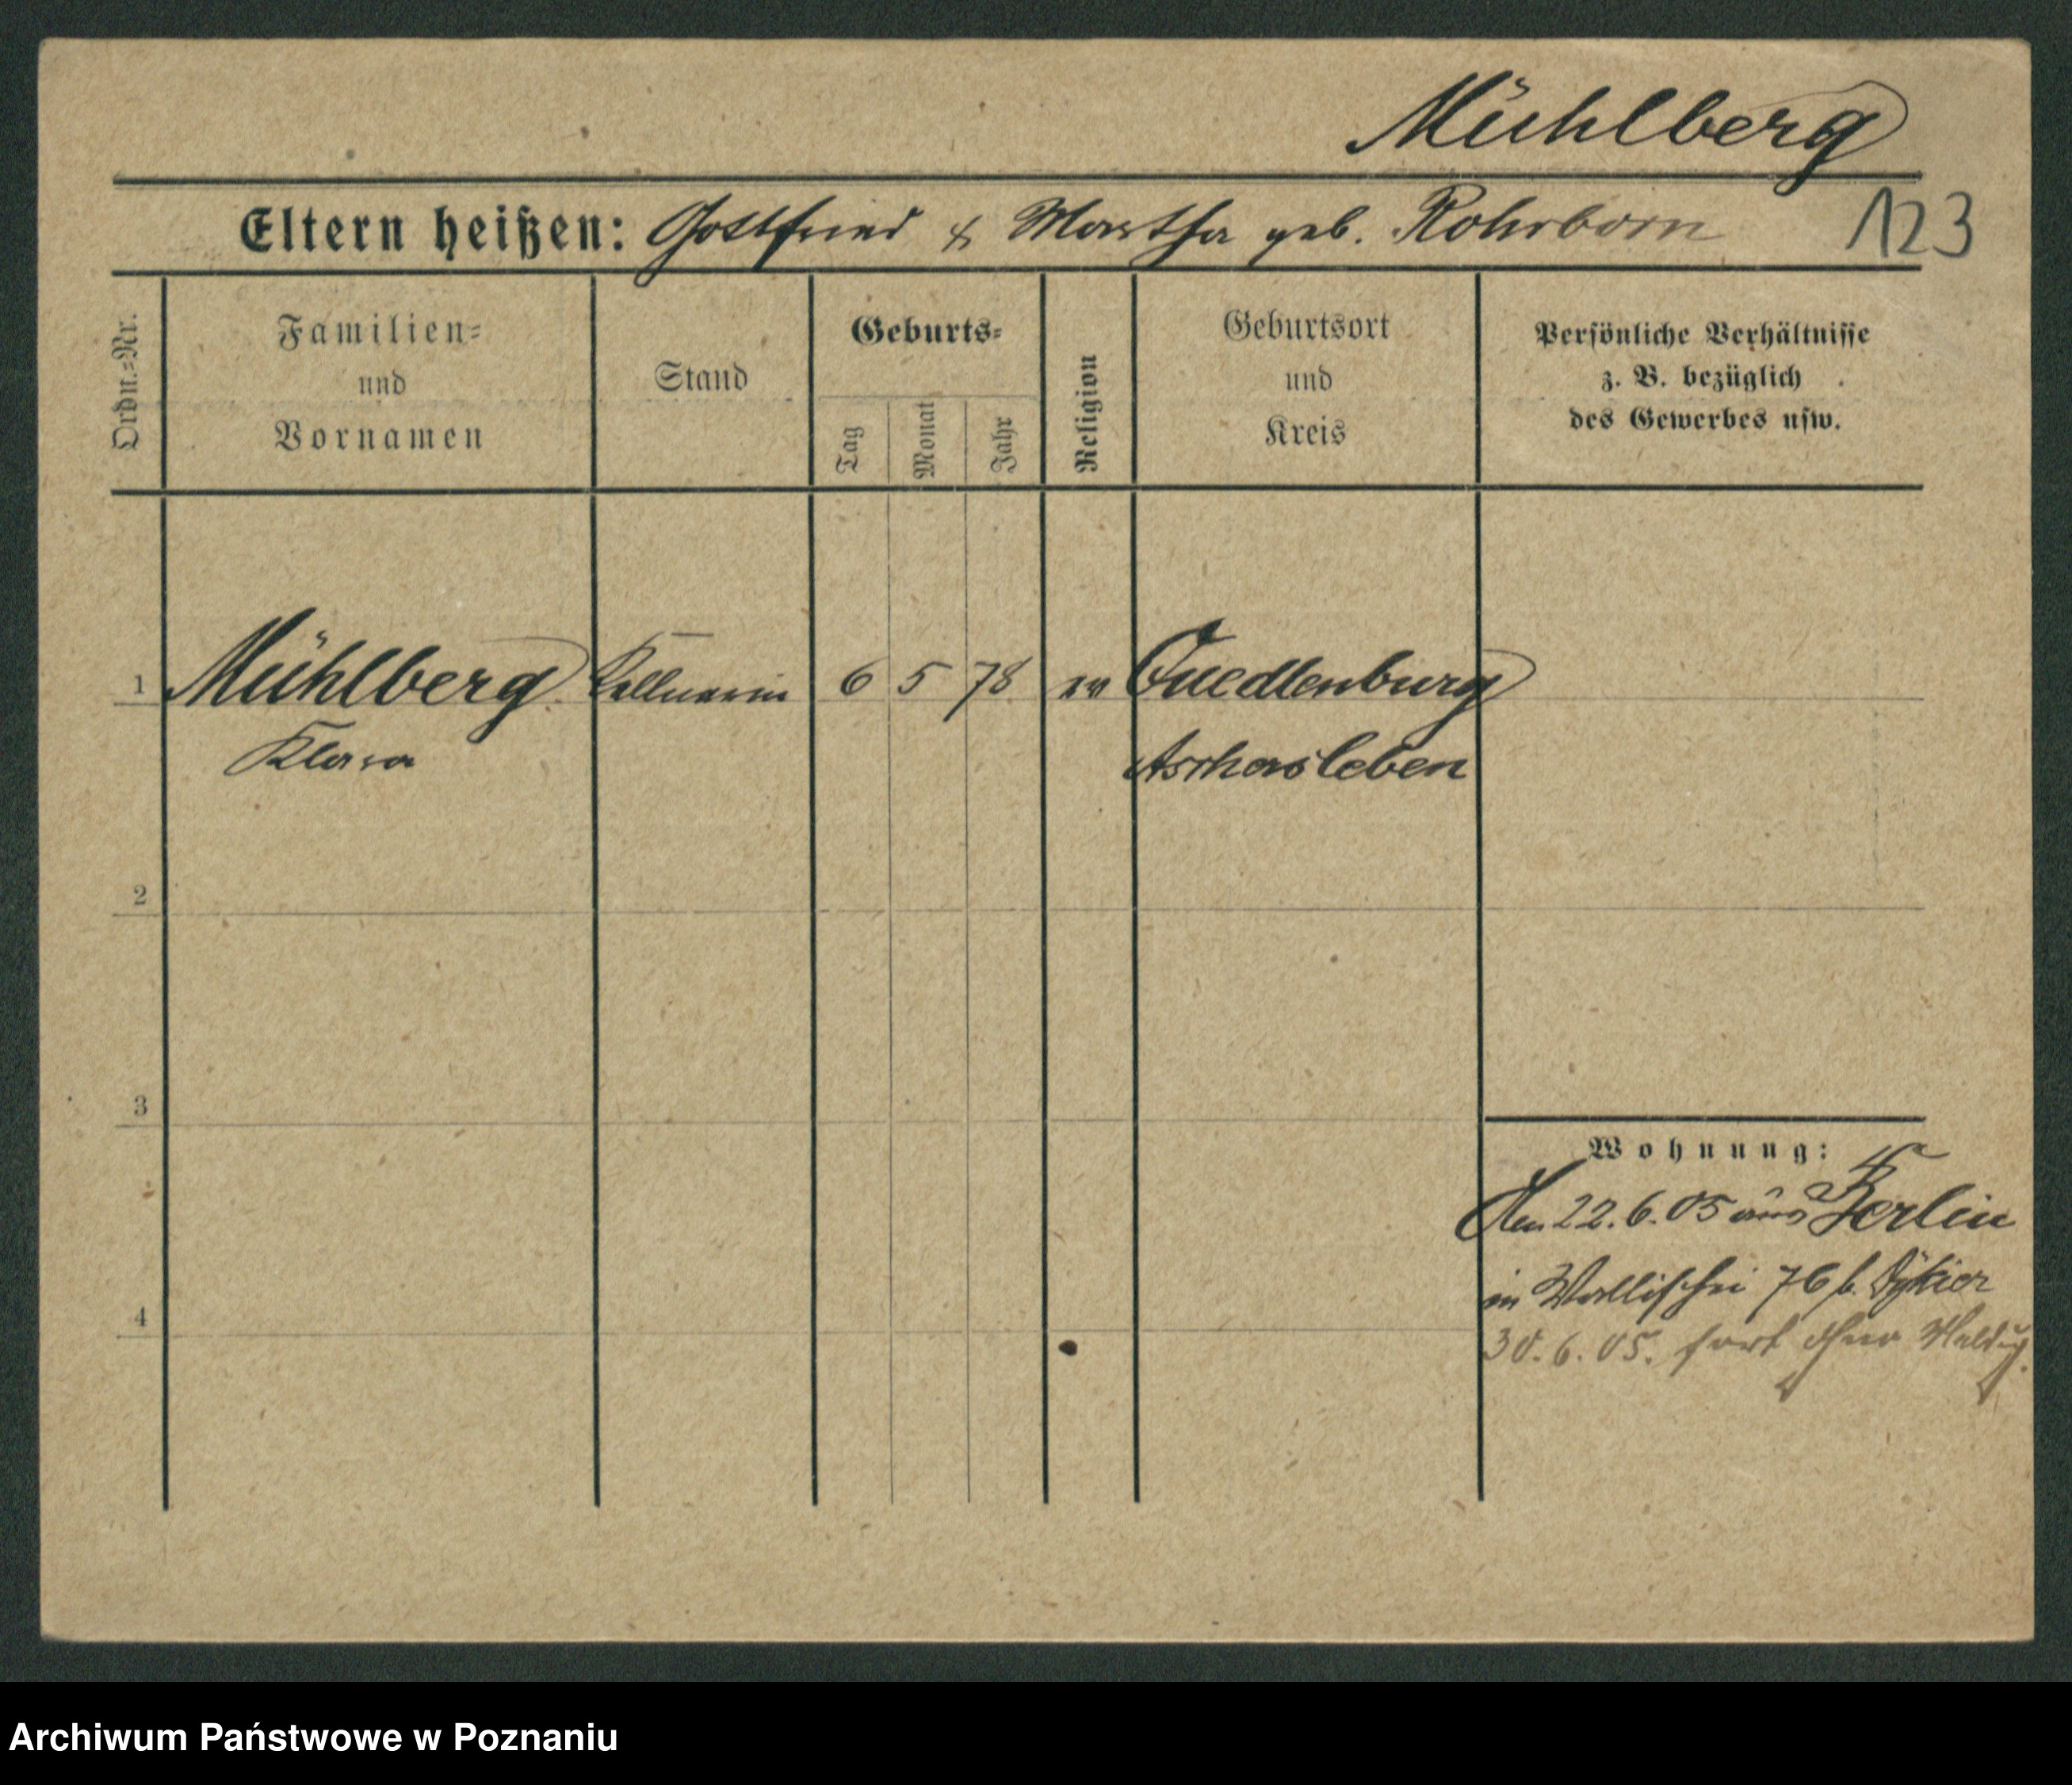 Mühlberg
Eltern heißen: Gottfried & Martha geb. Rohrborn 123
Ordn.=Nr.
Familien=
und
Vornamen
Stand
Geburts=
Tag
Monat
Jahr
Religion
Geburtsort
und
Kreis
Persönliche Verhältnisse
z. B. bezüglich
des Gewerbes usw.
1 Mühlberg Kellnerin 6 5 78 ev Quedlenburg
Klara Aschersleben
2
3
Wohnung:
Am 22.6.05 aus Berlin
in Wallischei 76 b.
4
30.6.05. fort ohne Meldug.
Archiwum Państwowe w Poznaniu